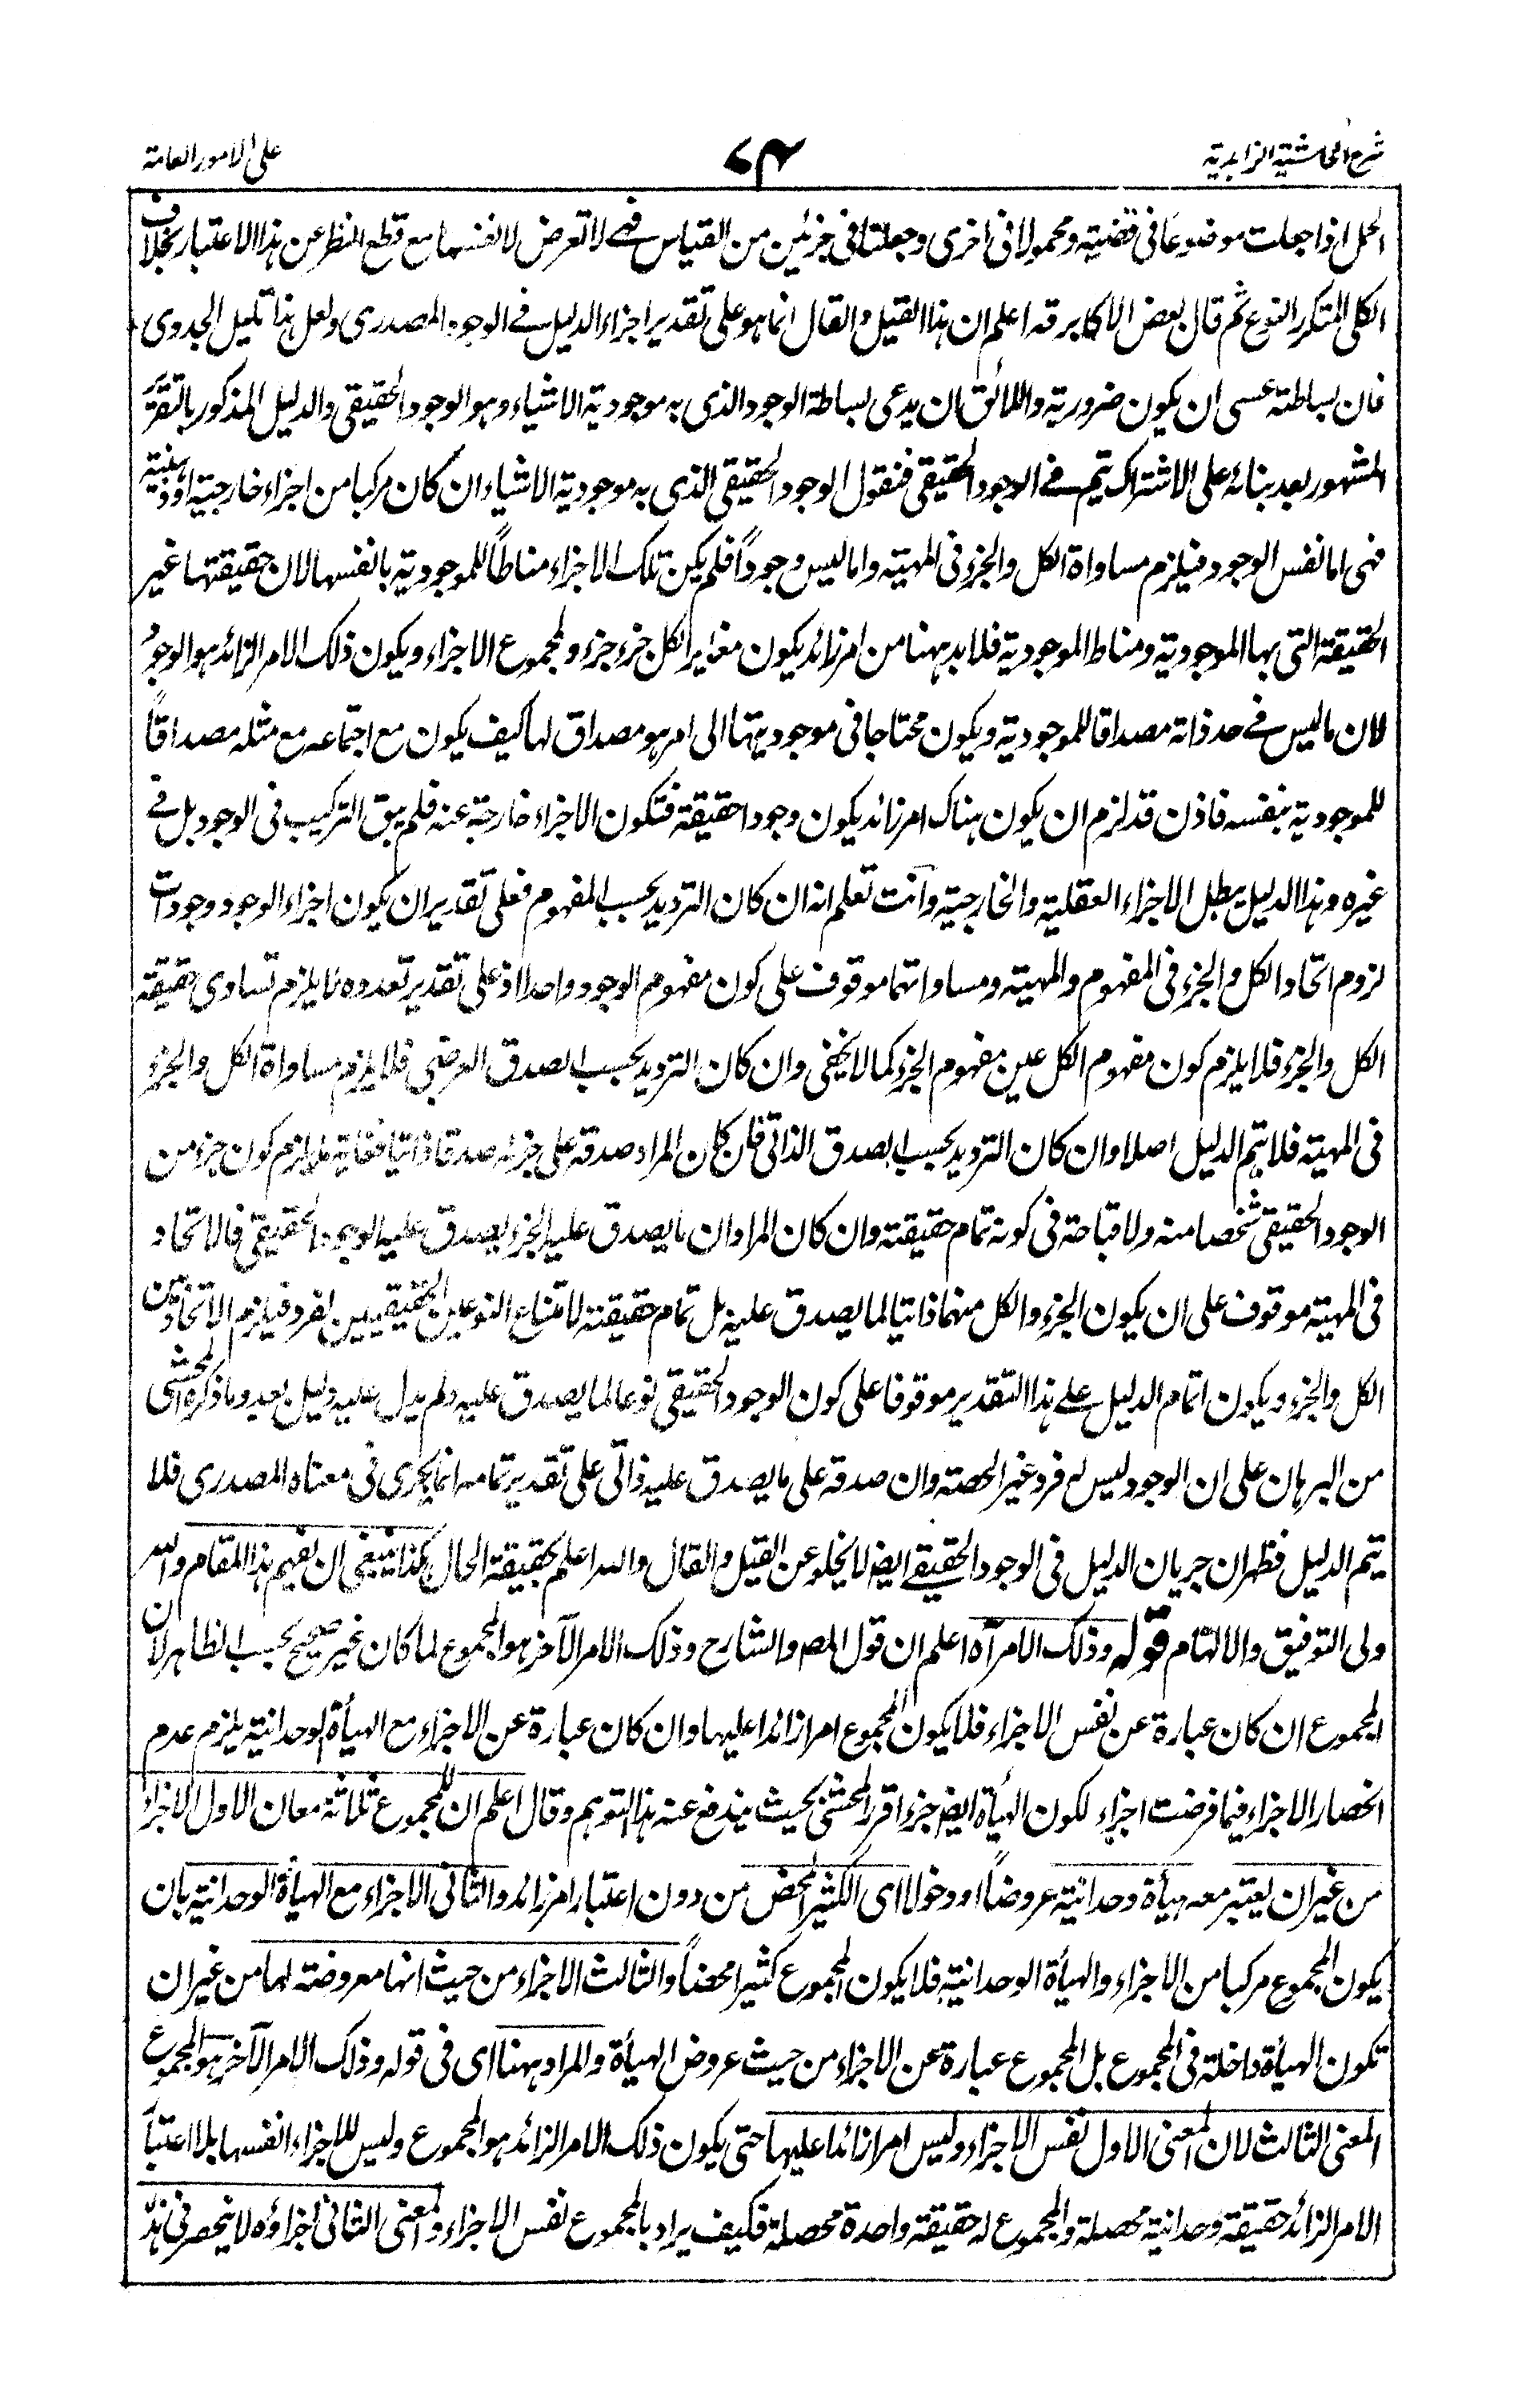 شرح الحاشية الزاهدية
٧٣
على الامور العامة
الحمل اذا جعلت موضوعا فى قضية ومحمولا فى اخرى وجعلتا فى جزئين من القياس فهى لا تعرض لانفسها مع قطع النظر عن هذا الاعتبار بخلاف
الكلى المتكرر النوع ثم قال بعض الاكابر قه اعلم ان هذا القيل والقال انما هو على تقدير اجراء الدليل فى الوجود المصدرى ولعل هذا قليل الجدوى
فان بساطته عسى ان يكون ضرورية واللائق ان يدعى بساطة الوجود الذى به موجودية الاشياء وهو الوجود الحقيقى والدليل المذكور بالتقرير
المشهور بعد بنائه على الاشتراك يتم فى الوجود الحقيقى فنقول الوجود الحقيقى الذى به موجودية الاشياء ان كان مركبا من اجزاء خارجية او ذهنية
فهى اما نفس الوجود فيلزم مساواة الكل والجزء فى المهية واما ليس وجوداً فلم يكن تلك الاجزاء مناطاً للموجودية بانفسها لان حقيقتها غير
الحقيقة التى بها الموجودية ومناط الموجودية فلا بد ههنا من امر زائد يكون مغايرا لكل جزء جزء ولمجموع الاجزاء ويكون ذلك الامر الزائد هو الوجود
لان ما ليس فى حد ذاته مصداقا للموجودية ويكون محتاجا فى موجوديتها الى امر هو مصداق لها كيف يكون مع اجتماعه مع مثله مصداقاً
للموجودية بنفسه فاذن قد لزم ان يكون هناك امر زائد يكون وجودا حقيقة فتكون الاجزاء خارجة عنه فلم يبق التركيب فى الوجود بل فى
غيره وهذا الدليل يبطل الاجزاء العقلية والخارجية وانت تعلم انه ان كان الترديد بحسب المفهوم فعلى تقدير ان يكون اجزاء الوجود وجودات
لزوم اتحاد الكل والجزء فى المفهوم والمهية ومساواتهما موقوف على كون مفهوم الوجود واحدا اذ على تقدير تعدده انما يلزم تساوى حقيقة
الكل والجزء فلا يلزم كون مفهوم الكل عين مفهوم الجزء كما لا يخفى وان كان الترديد بحسب الصدق العرضى فلا يلزم مساواة الكل والجزء
فى المهية فلا يتم الدليل اصلا وان كان الترديد بحسب الصدق الذاتى فان كان المراد صدقه على جزئه صدقا ذاتيا فغاية ما يلزم كون جزء من
الوجود الحقيقى شخصا منه ولا قباحة فى كونه تمام حقيقته وان كان المراد ان ما يصدق عليه الجزء يصدق عليه الوجود الحقيقى فالاتحاد
فى المهية موقوف على ان يكون الجزء والكل منهما ذاتيا لما يصدق عليه بل تمام حقيقته لامتناع النوعين الحقيقيين لفرد فيلزم الاتحاد بين
الكل والجزء ويكون اتمام الدليل على هذا التقدير موقوفا على كون الوجود الحقيقى نوعا لما يصدق عليه ولم يدل عليه دليل بعد وما ذكره المحشى
من البرهان على ان الوجود ليس له فرد غير الحصة وان صدقه على ما يصدق عليه ذاتى على تقدير تمامه انما يجرى فى معناه المصدرى فلا
يتم الدليل فظهر ان جريان الدليل فى الوجود الحقيقى ايضا لا يخلو عن القيل والقال والله اعلم بحقيقة الحال هكذا ينبغى ان يفهم هذا المقام والله
ولى التوفيق والالهام قوله وذلك الامر آه اعلم ان قول المص والشارح وذلك الامر الآخر هو المجموع لما كان غير صحيح بحسب الظاهر لان
المجموع ان كان عبارة عن نفس الاجزاء فلا يكون المجموع امرا زائدا عليها وان كان عبارة عن الاجزاء مع الهيأة الوحدانية يلزم عدم
انحصار الاجزاء فيما فرضت اجزاء لكون الهيأة ايضا جزء اقرر المحشى بحيث يندفع عنه هذا التوهم وقال اعلم ان للمجموع ثلاثة معان الاول الاجزاء
من غير ان يعتبر معه هيأة وحدانية عروضاً او دخولا اى الكثير المحض من دون اعتبار امر زائد والثانى الاجزاء مع الهيأة الوحدانية بان
يكون المجموع مركبا من الاجزاء والهيأة الوحدانية فلا يكون المجموع كثيرا محضاً والثالث الاجزاء من حيث انها معروضة لها من غير ان
تكون الهيأة داخلة فى المجموع بل المجموع عبارة عن الاجزاء من حيث عروض الهيأة والمراد ههنا اى فى قوله وذلك الامر الآخر هو المجموع
المعنى الثالث لان المعنى الاول نفس الاجزاء وليس امرا زائدا عليها حتى يكون ذلك الامر الزائد هو المجموع وليس للاجزاء انفسها بلا اعتبار
الامر الزائد حقيقة وحدانية محصلة والمجموع له حقيقة واحدة محصلة فكيف يراد بالمجموع نفس الاجزاء والمعنى الثانى اجزاؤه لا ينحصر فى هذه